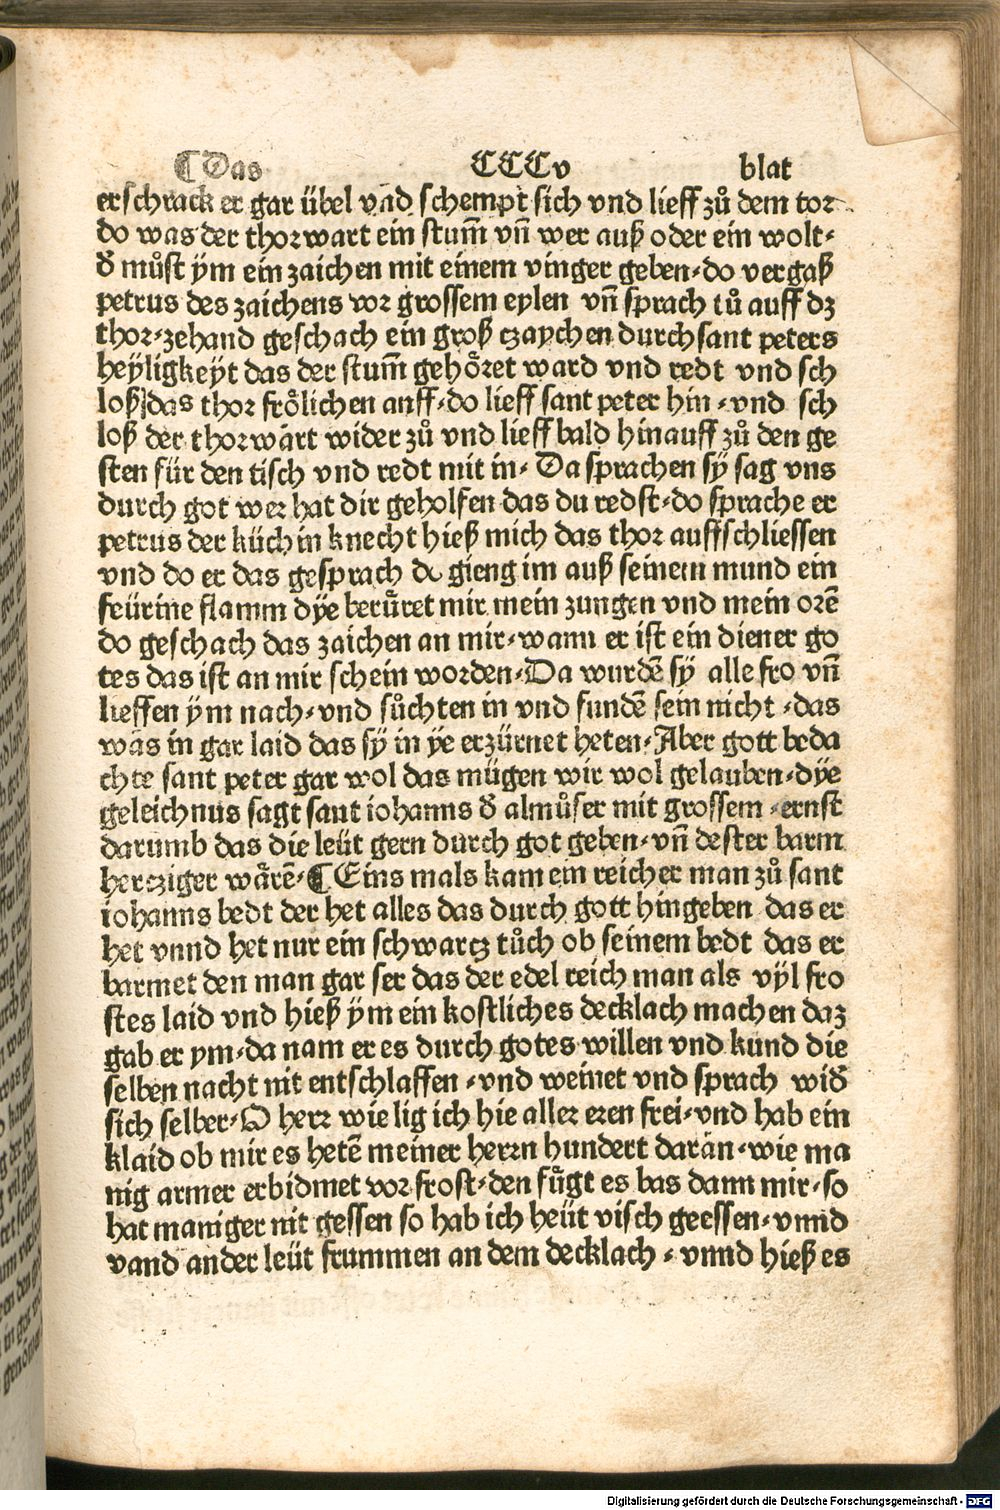 ¶ Das CCCv blat
erschrack er gar übel vnd schempt sich vnd lieff zů dem tor
do was der thorwart ein stum̃ vñ wer auß oder ein wolt⸗
đ můst ÿm ein zaichen mit einem vinger geben⸗do vergaß
petrus des zaichens vor grossem eylen vñ sprach tů auff dz
thor⸗zehand geschach ein groß czaychen durch sant peters
heÿligkeÿt das der stum̃ gehöret ward vnd redt vnd sch
loß das thor frölichen auff⸗do lieff sant peter hin⸗vnd sch
loß der thorwart wider zů vnd lieff bald hinauff zů den ge
sten für den tisch vnd redt mit in⸗Da sprachen sÿ sag vns
durch got wer hat dir geholfen das du redst⸗do sprache er
petrus der küchin knecht hieß mich das thor auffschliessen
vnd do er das gesprach do gieng im auß seinem mund ein
feürine flamm dÿe berüret mir mein zungen vnd mein orē
do geschach das zaichen an mir⸗wann er ist ein diener go
tes das ist an mir schein worden⸗Da wurdē sÿ alle fro vñ
lieffen ÿm nach⸗vnd sůchten in vnd fundē sein nicht⸗das
was in gar laid das sÿ in ÿe erzürnet heten⸗Aber gott beda
chte sant peter gar wol das mügen wir wol gelauben⸗dÿe
geleichnus sagt sant iohanns đ almůser mit grossem⸗ernst
darumb das die leüt gern durch got geben⸗vñ dester barm
hercziger wärē⸗¶ Eins mals kam ein reicher man zů sant
iohanns bedt der het alles das durch gott hingeben das er
het vnnd het nur ein schwartz tůch ob seinem bedt das er
barmet den man gar ser das der edel reich man als vÿl fro
stes laid vnd hieß ÿm ein kostliches decklach machen daz
gab er ym⸗da nam er es durch gotes willen vnd kund die
selben nacht nit entschlaffen⸗vnd weinet vnd sprach wiđ
sich selber⸗O herr wie lig ich hie aller eren frei⸗vnd hab ein
klaid ob mir es hetē meiner herrn hundert darän⸗wie ma
nig armer erbidmet vor frost⸗den fügt es bas dann mir⸗so
hat maniger nit gessen so hab ich heüt visch geessen⸗vnnd
vand ander leüt frummen an dem decklach⸗vnnd hieß es
Digitalisierung gefördert durch die Deutsche Forschungsgemeinschaft - DFG